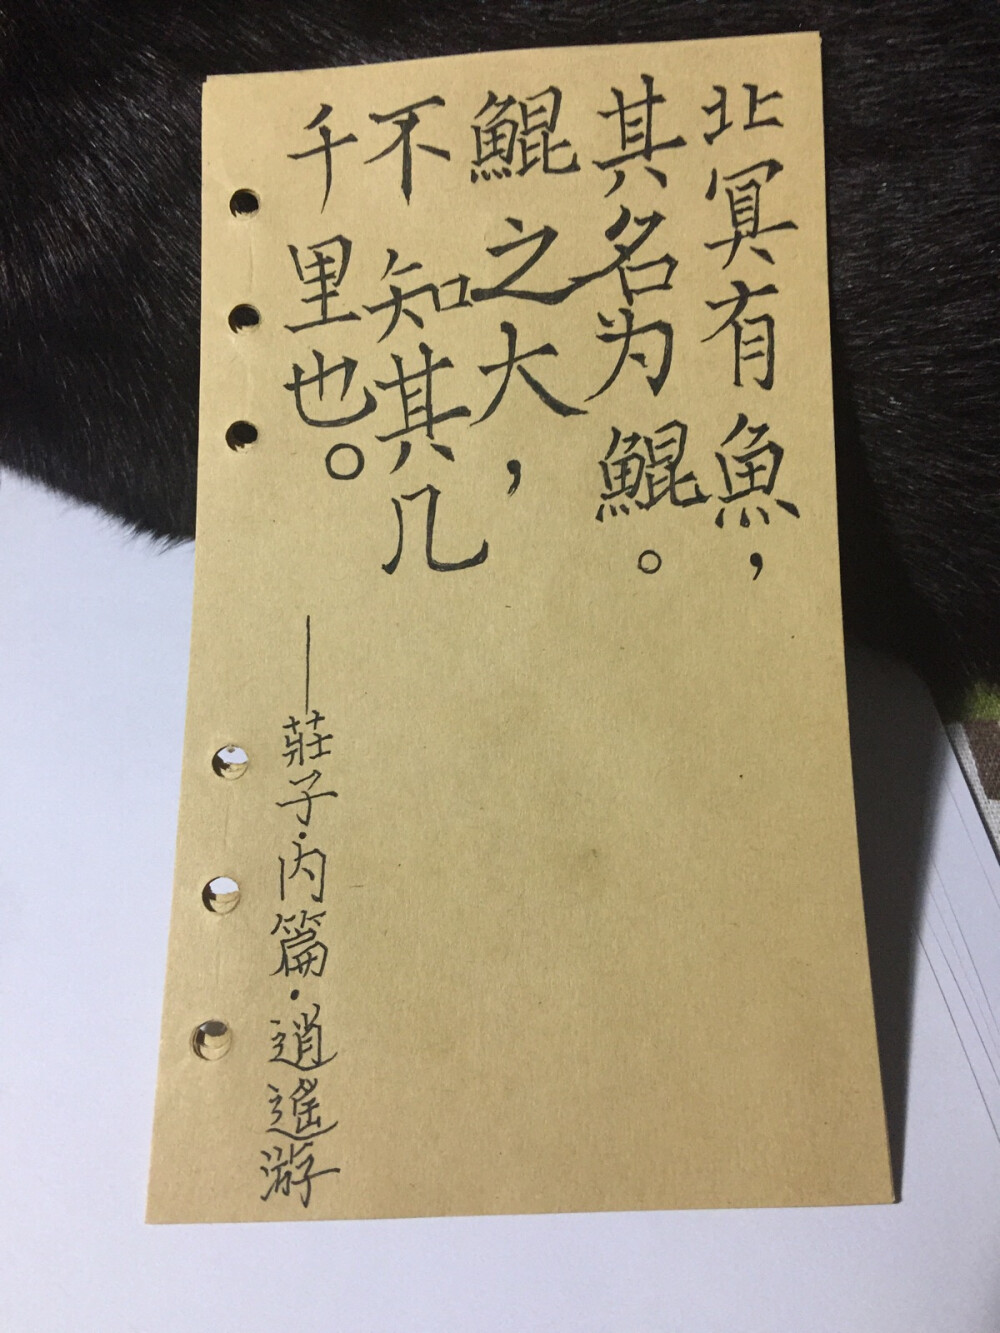 北冥有魚，
其名为鯤。
鯤之大，
不知其几
千里也。
——莊子·内篇·逍遙游